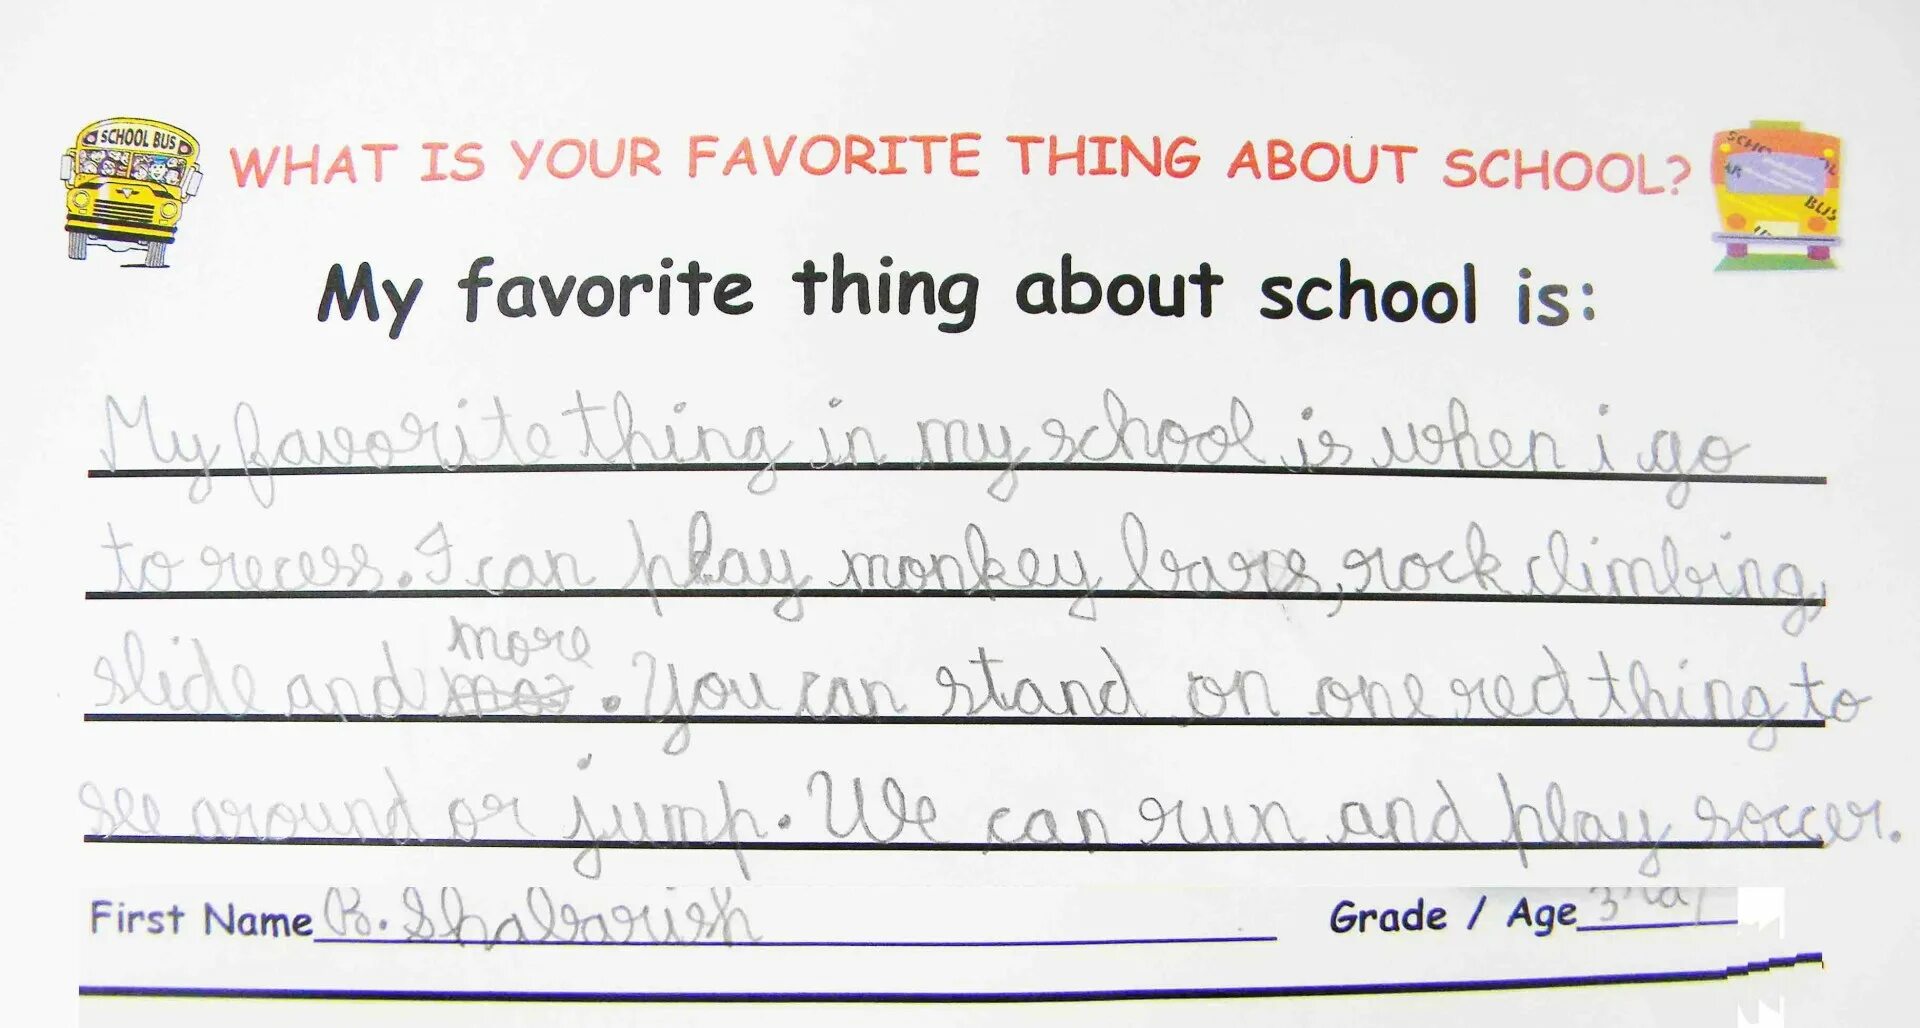 SCHOOL BUS
WHAT IS YOUR FAVORITE THING ABOUT SCHOOL?
My favorite thing about school is:
My favorite thing in my school is when i go
to recess. I can play monkey bars, rock climbing,
slide and more. You can stand on one red thing to
see around or jump. We can run and play soccer.
First Name R. Shabarish Grade / Age 3rd /